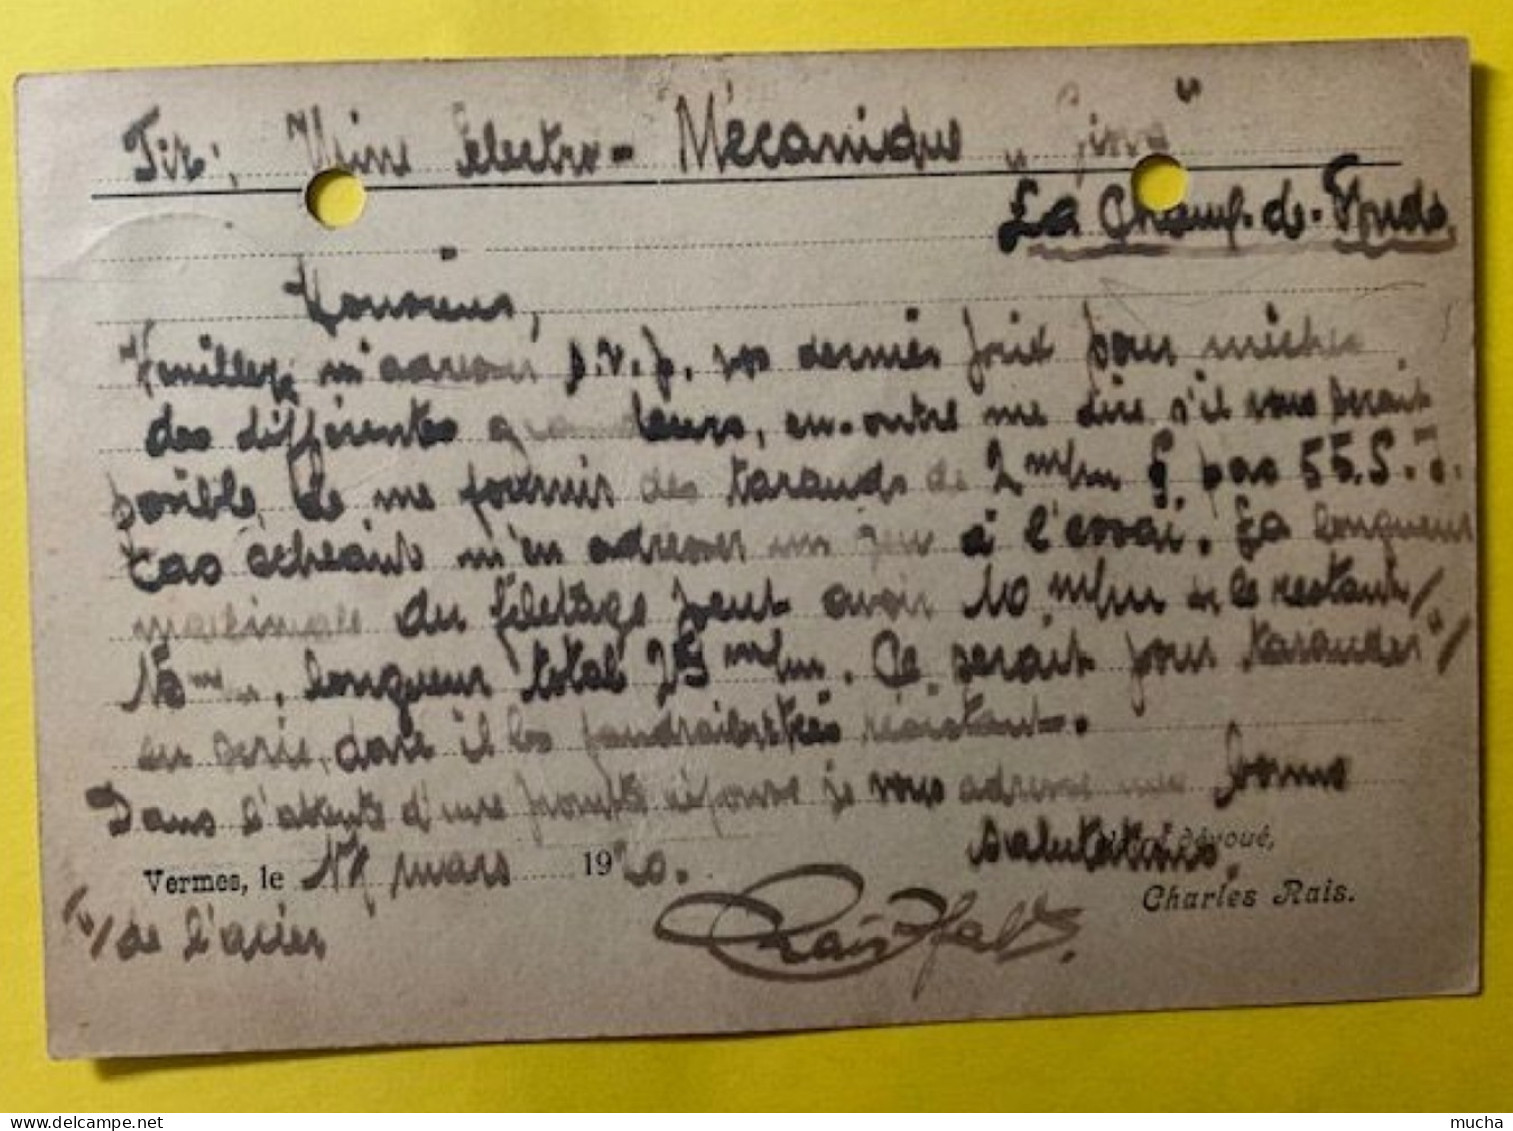 Tit: "Usine Electro-Mécanique
La Chaux-de-Fonds
Monsieur,
Veuillez m'adresser s.v.p. vos derniers prix pour mèches
des différentes grandeurs, en-outre me dire s'il vous serait
possible de me fournir des tarauds de 2 m/m pas 55. S.
Cas échéant m'en adresser un jeu à l'essai. La longueur
maximale du filetage peut avoir 10 m/m et le restant
15 m/m, longueur total 25 m/m. Ce serait pour tarauder
en série, donc il les faudrait très résistant.
Dans l'attente d'une prompte réponse je vous adresse mes bonnes
salutations.
dévoué,
Vermes, le mars 1920.
Charles Rais.
de l'acier